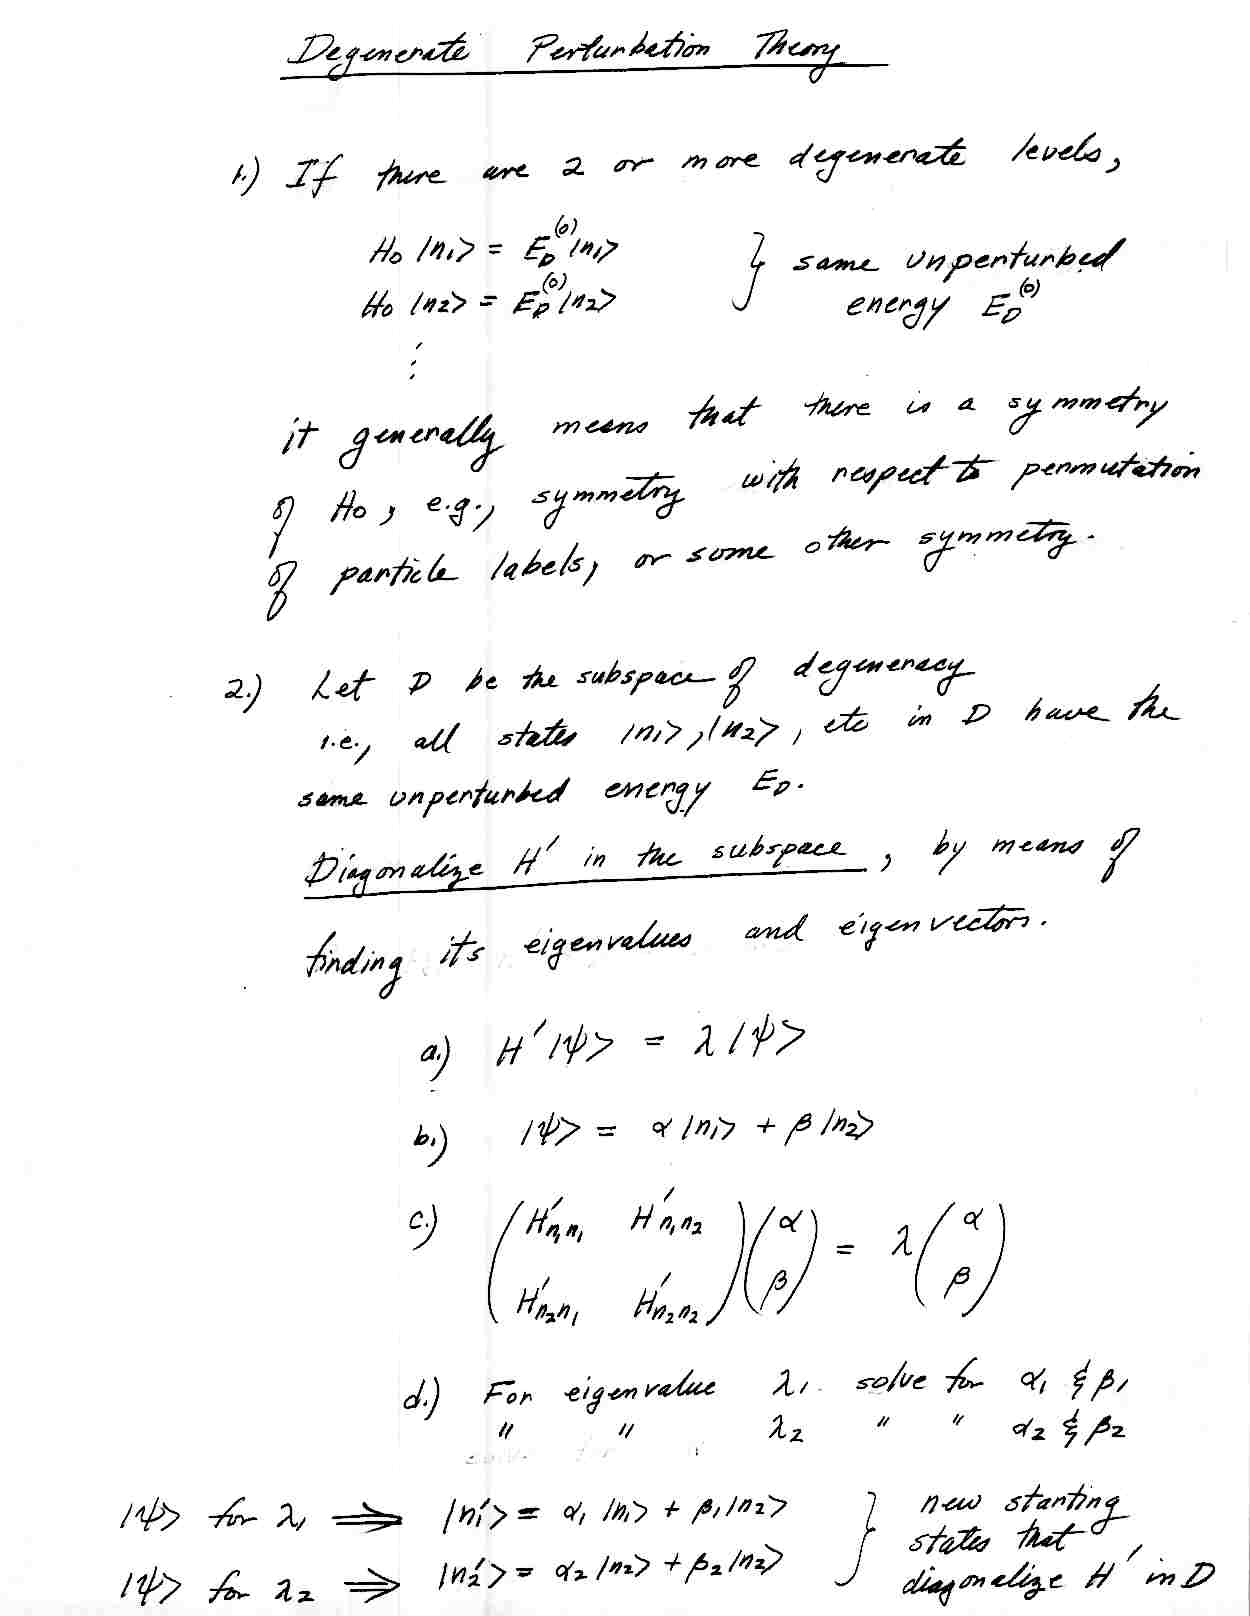 Degenerate Perturbation Theory
1.) If there are 2 or more degenerate levels,
H₀ |n₁> = E_D^(0) |n₁>
H₀ |n₂> = E_D^(0) |n₂>
} same unperturbed
energy E_D^(0)
⋮
it generally means that there is a symmetry
of H₀, e.g., symmetry with respect to permutation
of particle labels, or some other symmetry.
2.) Let D be the subspace of degeneracy
i.e., all states |n₁>, |n₂>, etc in D have the
same unperturbed energy E_D.
Diagonalize H' in the subspace, by means of
finding its eigenvalues and eigenvectors.
a.) H' |ψ> = λ |ψ>
b.) |ψ> = α |n₁> + β |n₂>
c.) ( H'n₁n₁ H'n₁n₂ ) ( α ) = λ ( α )
( H'n₂n₁ H'n₂n₂ ) ( β ) ( β )
d.) For eigenvalue λ₁ solve for α₁ & β₁
" " λ₂ " " α₂ & β₂
|ψ> for λ₁ ⟹ |n₁'> = α₁ |n₁> + β₁ |n₂>
|ψ> for λ₂ ⟹ |n₂'> = α₂ |n₂> + β₂ |n₂>
} new starting
states that
diagonalize H' in D